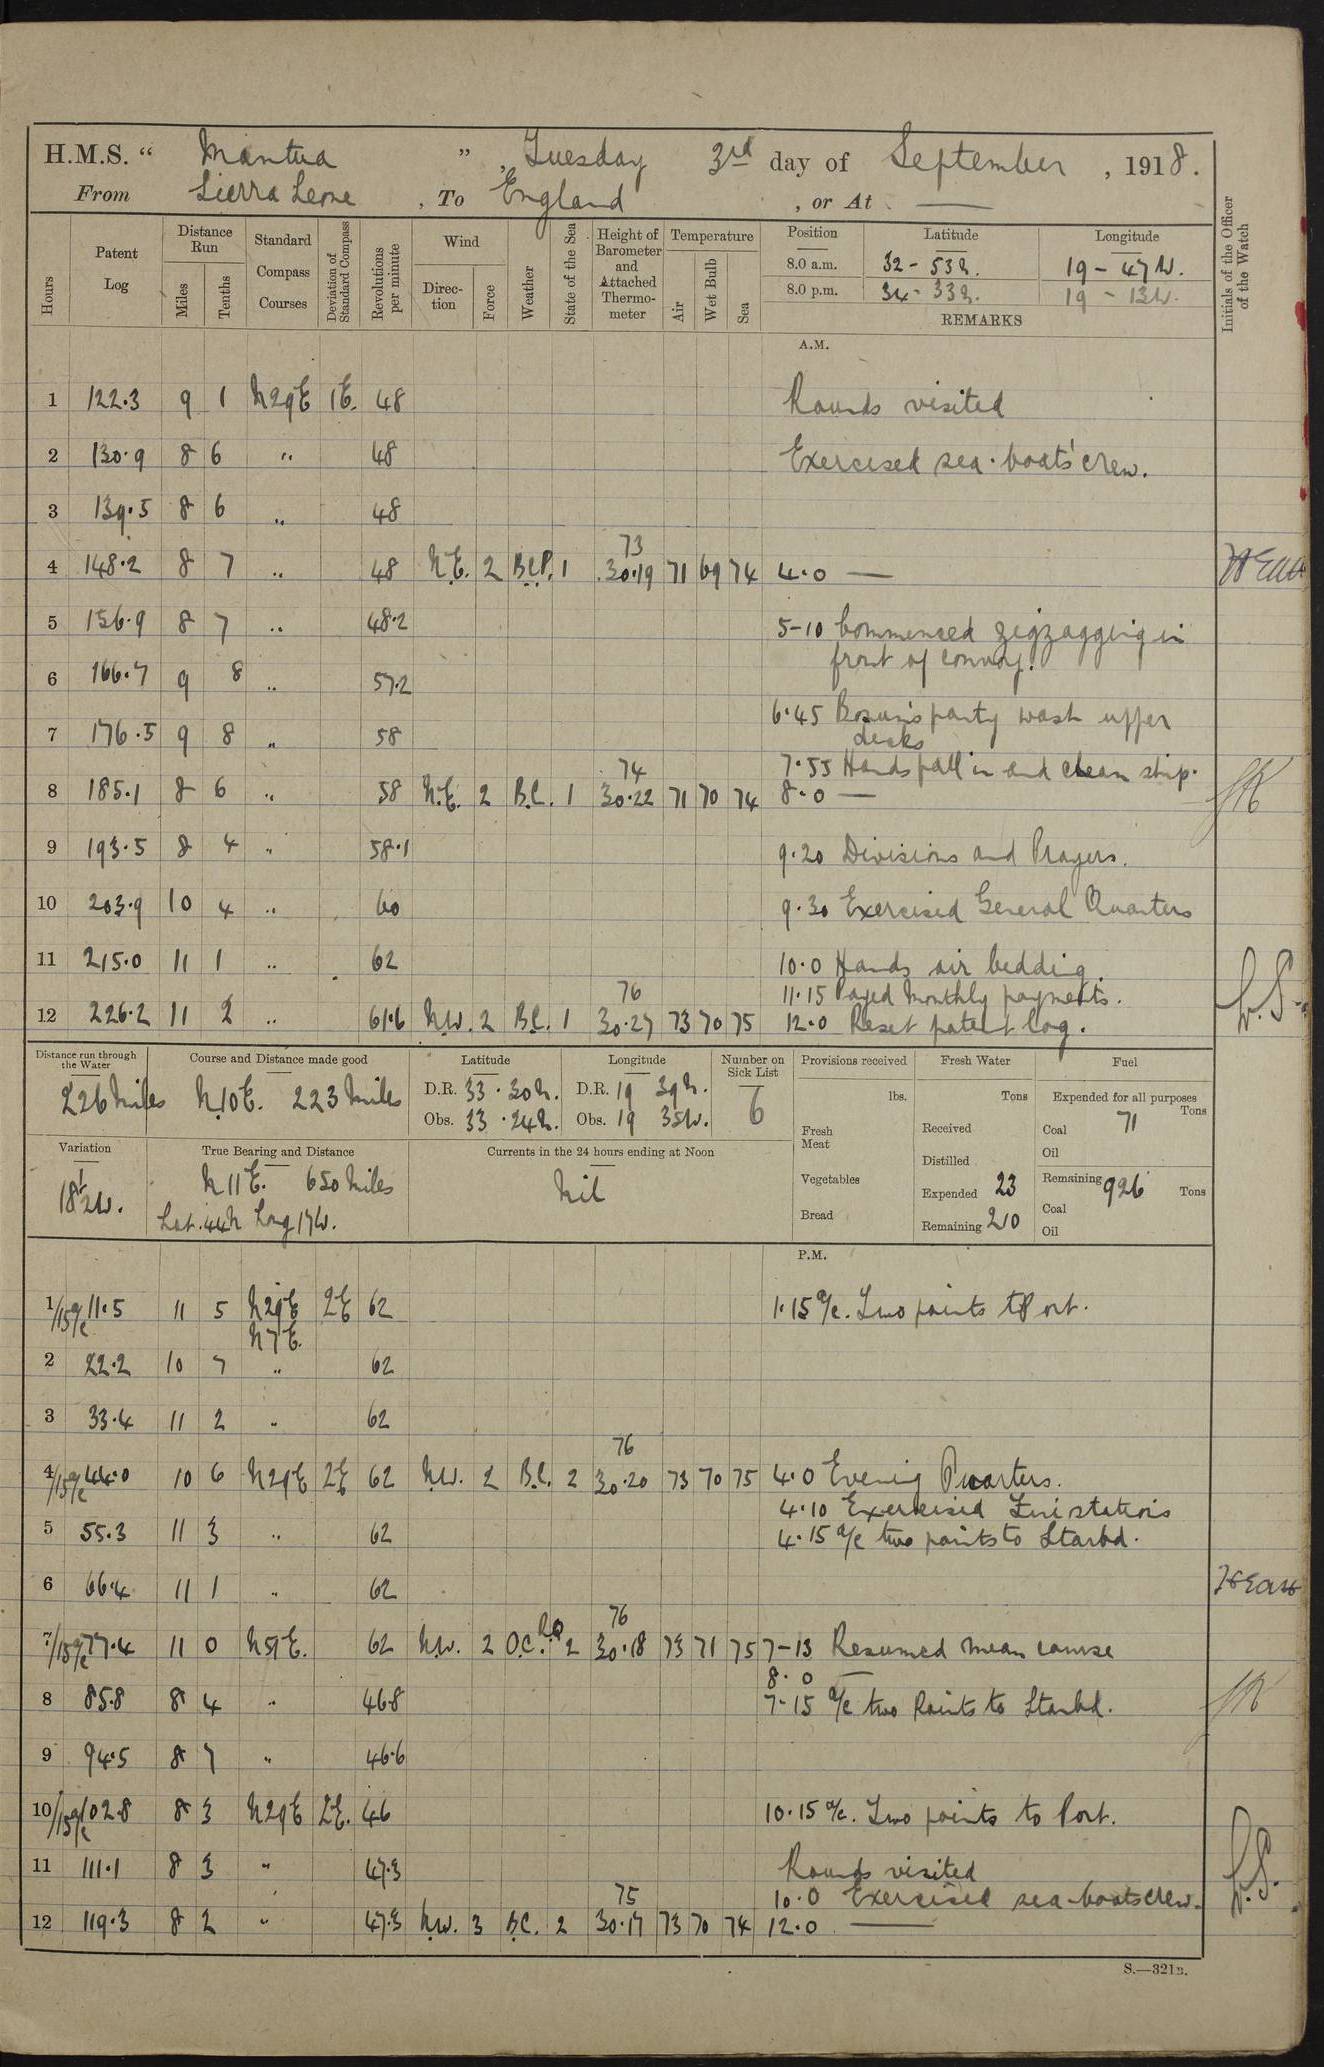 H.M.S. “ Mantua ” , Tuesday 3rd day of September , 1918.
From Sierra Leone , To England , or At —
Hours
Patent Log
Distance Run
Miles
Tenths
Standard Compass Courses
Deviation of Standard Compass
Revolutions per minute
Wind
Direction
Force
Weather
State of the Sea
Height of Barometer and Attached Thermometer
Temperature
Air
Wet Bulb
Sea
Position Latitude Longitude
8.0 a.m. 32 - 53 N. 19 - 47 W.
8.0 p.m. 34 - 33 N. 19 - 13 W.
REMARKS
Initials of the Officer of the Watch
A.M.
1 122.3 9 1 N29E 1E. 48 Rounds visited
2 130.9 8 6 " 48 Exercised sea-boats' crew.
3 139.5 8 6 " 48
73
4 148.2 8 7 " 48 N.E. 2 B.C.P. 1 30.19 71 69 74 4.0 —
5 156.9 8 7 " 48.2 5-10 Commenced zigzagging in
front of convoy.
6 166.7 9 8 " 57.2
6.45 Bosun's party wash upper
decks
7 176.5 9 8 " 58
74 7.55 Hands fall in and clean ship.
8 185.1 8 6 " 58 N.E. 2 B.C. 1 30.22 71 70 74 8.0 —
9 193.5 8 4 " 58.1 9.20 Divisions and Prayers.
10 203.9 10 4 " 60 9.30 Exercised General Quarters
11 215.0 11 1 " 62 10.0 Hands air bedding.
76 11.15 Payed Monthly payments.
12 226.2 11 2 " 61.6 N.W. 2 B.C. 1 30.27 73 70 75 12.0 Reset patent log.
L.S.
Distance run through the Water
226 Miles
Course and Distance made good
N.10E. 223 Miles
Latitude
D.R. 33 . 30 N.
Obs. 33 . 24 N.
Longitude
D.R. 19 39 W.
Obs. 19 35 W.
Number on Sick List
6
Provisions received
lbs.
Fresh Meat
Vegetables
Bread
Fresh Water
Tons
Received
Distilled
Expended 23
Remaining 210
Fuel
Expended for all purposes
Tons
Coal 71
Oil
Remaining 926 Tons
Coal
Oil
Variation
18½W.
True Bearing and Distance
N11E. 650 Miles
Lat. 44N Long 17W.
Currents in the 24 hours ending at Noon
Nil
P.M.
1/15 a/c 11.5 11 5 N29E 2E 62 1.15 a/c. Two points to Port.
N7E.
2 22.2 10 7 " 62
3 33.4 11 2 " 62
76
4/15 a/c 44.0 10 6 N29E 2E 62 N.W. 2 B.C. 2 30.20 73 70 75 4.0 Evening Quarters.
4.10 Exercised Fire stations
5 55.3 11 3 " 62 4.15 a/c two points to Starbd.
6 66.4 11 1 " 62
76
7/15 a/c 77.4 11 0 N51E. 62 N.W. 2 O.C. 2 30.18 73 71 75 7-13 Resumed mean course
8.0 —
8 85.8 8 4 " 46.8 7-15 a/c two Points to Starbd.
9 94.5 8 7 " 46.6
10/15 a/c 102.8 8 3 N29E 2E. 46 10.15 a/c. Two points to Port.
11 111.1 8 3 " 47.3 Rounds visited
75 10.0 Exercised sea-boats crew.
12 119.3 8 2 " 47.3 N.W. 3 B.C. 2 30.17 73 70 74 12.0 —
L.S.
S.—321B.